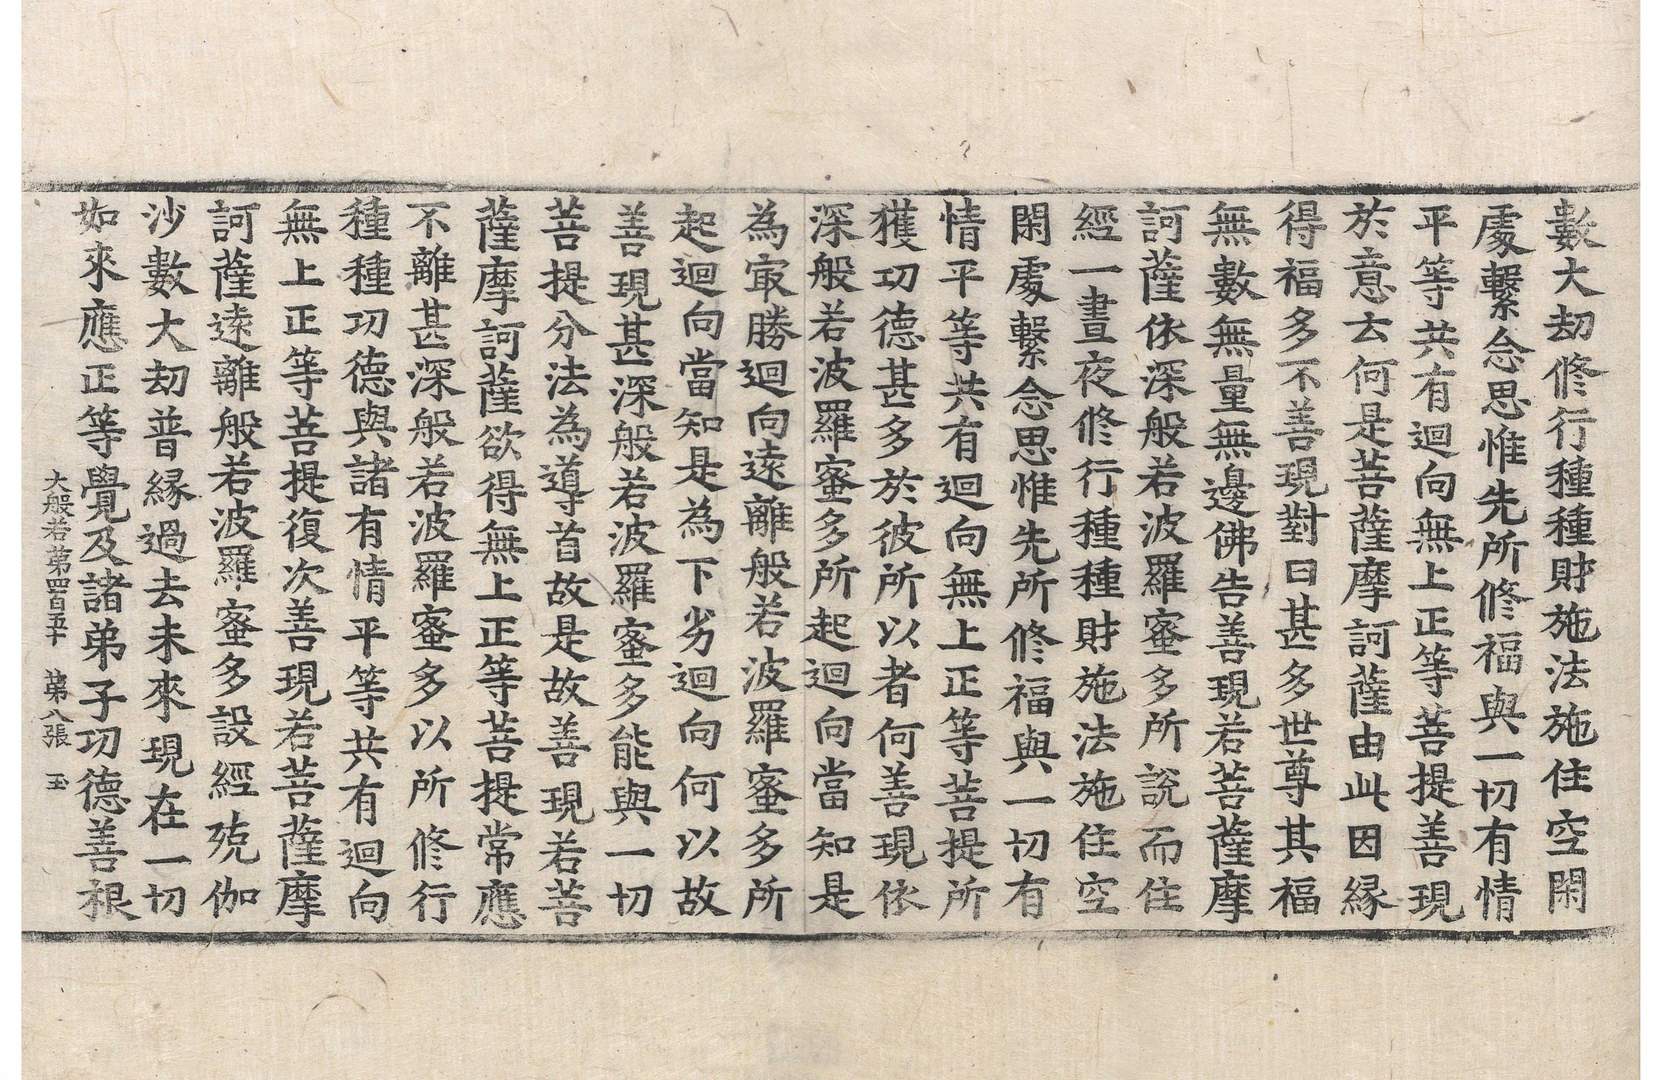 數大劫修行種種財施法施住空閑
處繫念思惟先所修福與一切有情
平等共有迴向無上正等菩提善現
於意云何是菩薩摩訶薩由此因縁
得福多不善現對曰甚多世尊其福
無數無量無邊佛告善現若菩薩摩
訶薩依深般若波羅蜜多所說而住
經一晝夜修行種種財施法施住空
閑處繫念思惟先所修福與一切有
情平等共有迴向無上正等菩提所
獲功德甚多於彼所以者何善現依
深般若波羅蜜多所起迴向當知是
為㝡勝迴向遠離般若波羅蜜多所
起迴向當知是為下劣迴向何以故
善現甚深般若波羅蜜多能與一切
菩提分法為導首故是故善現若菩
薩摩訶薩欲得無上正等菩提常應
不離甚深般若波羅蜜多以所修行
種種功德與諸有情平等共有迴向
無上正等菩提復次善現若菩薩摩
訶薩遠離般若波羅蜜多設經殑伽
沙數大劫普縁過去未來現在一切
如來應正等覺及諸弟子功德善根
大般若第四百五十 第八張 玉